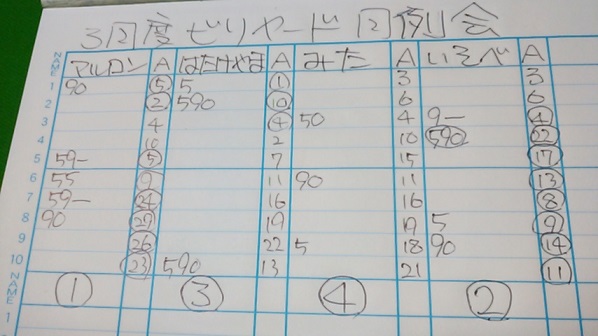 3回度ビリヤード回例会
NAME アルロン A はたけやま A みた A いそべ A
1 90 ⑤ 5 ① 3 3
2 ② 590 ⑩ 6 6
3 4 ④ 50 4 9- ④
4 10 2 10 590 ㉒
5 59- ⑤ 7 15 ⑰
6 55 ⑨ 11 90 11 ⑬
7 59- ㉔ 16 16 ⑧
8 90 ㉙ 19 19 5 ⑨
9 ㉖ 22 5 18 90 ⑭
10 ㉓ 590 13 21 ⑪
NAME ① ③ ④ ②
1